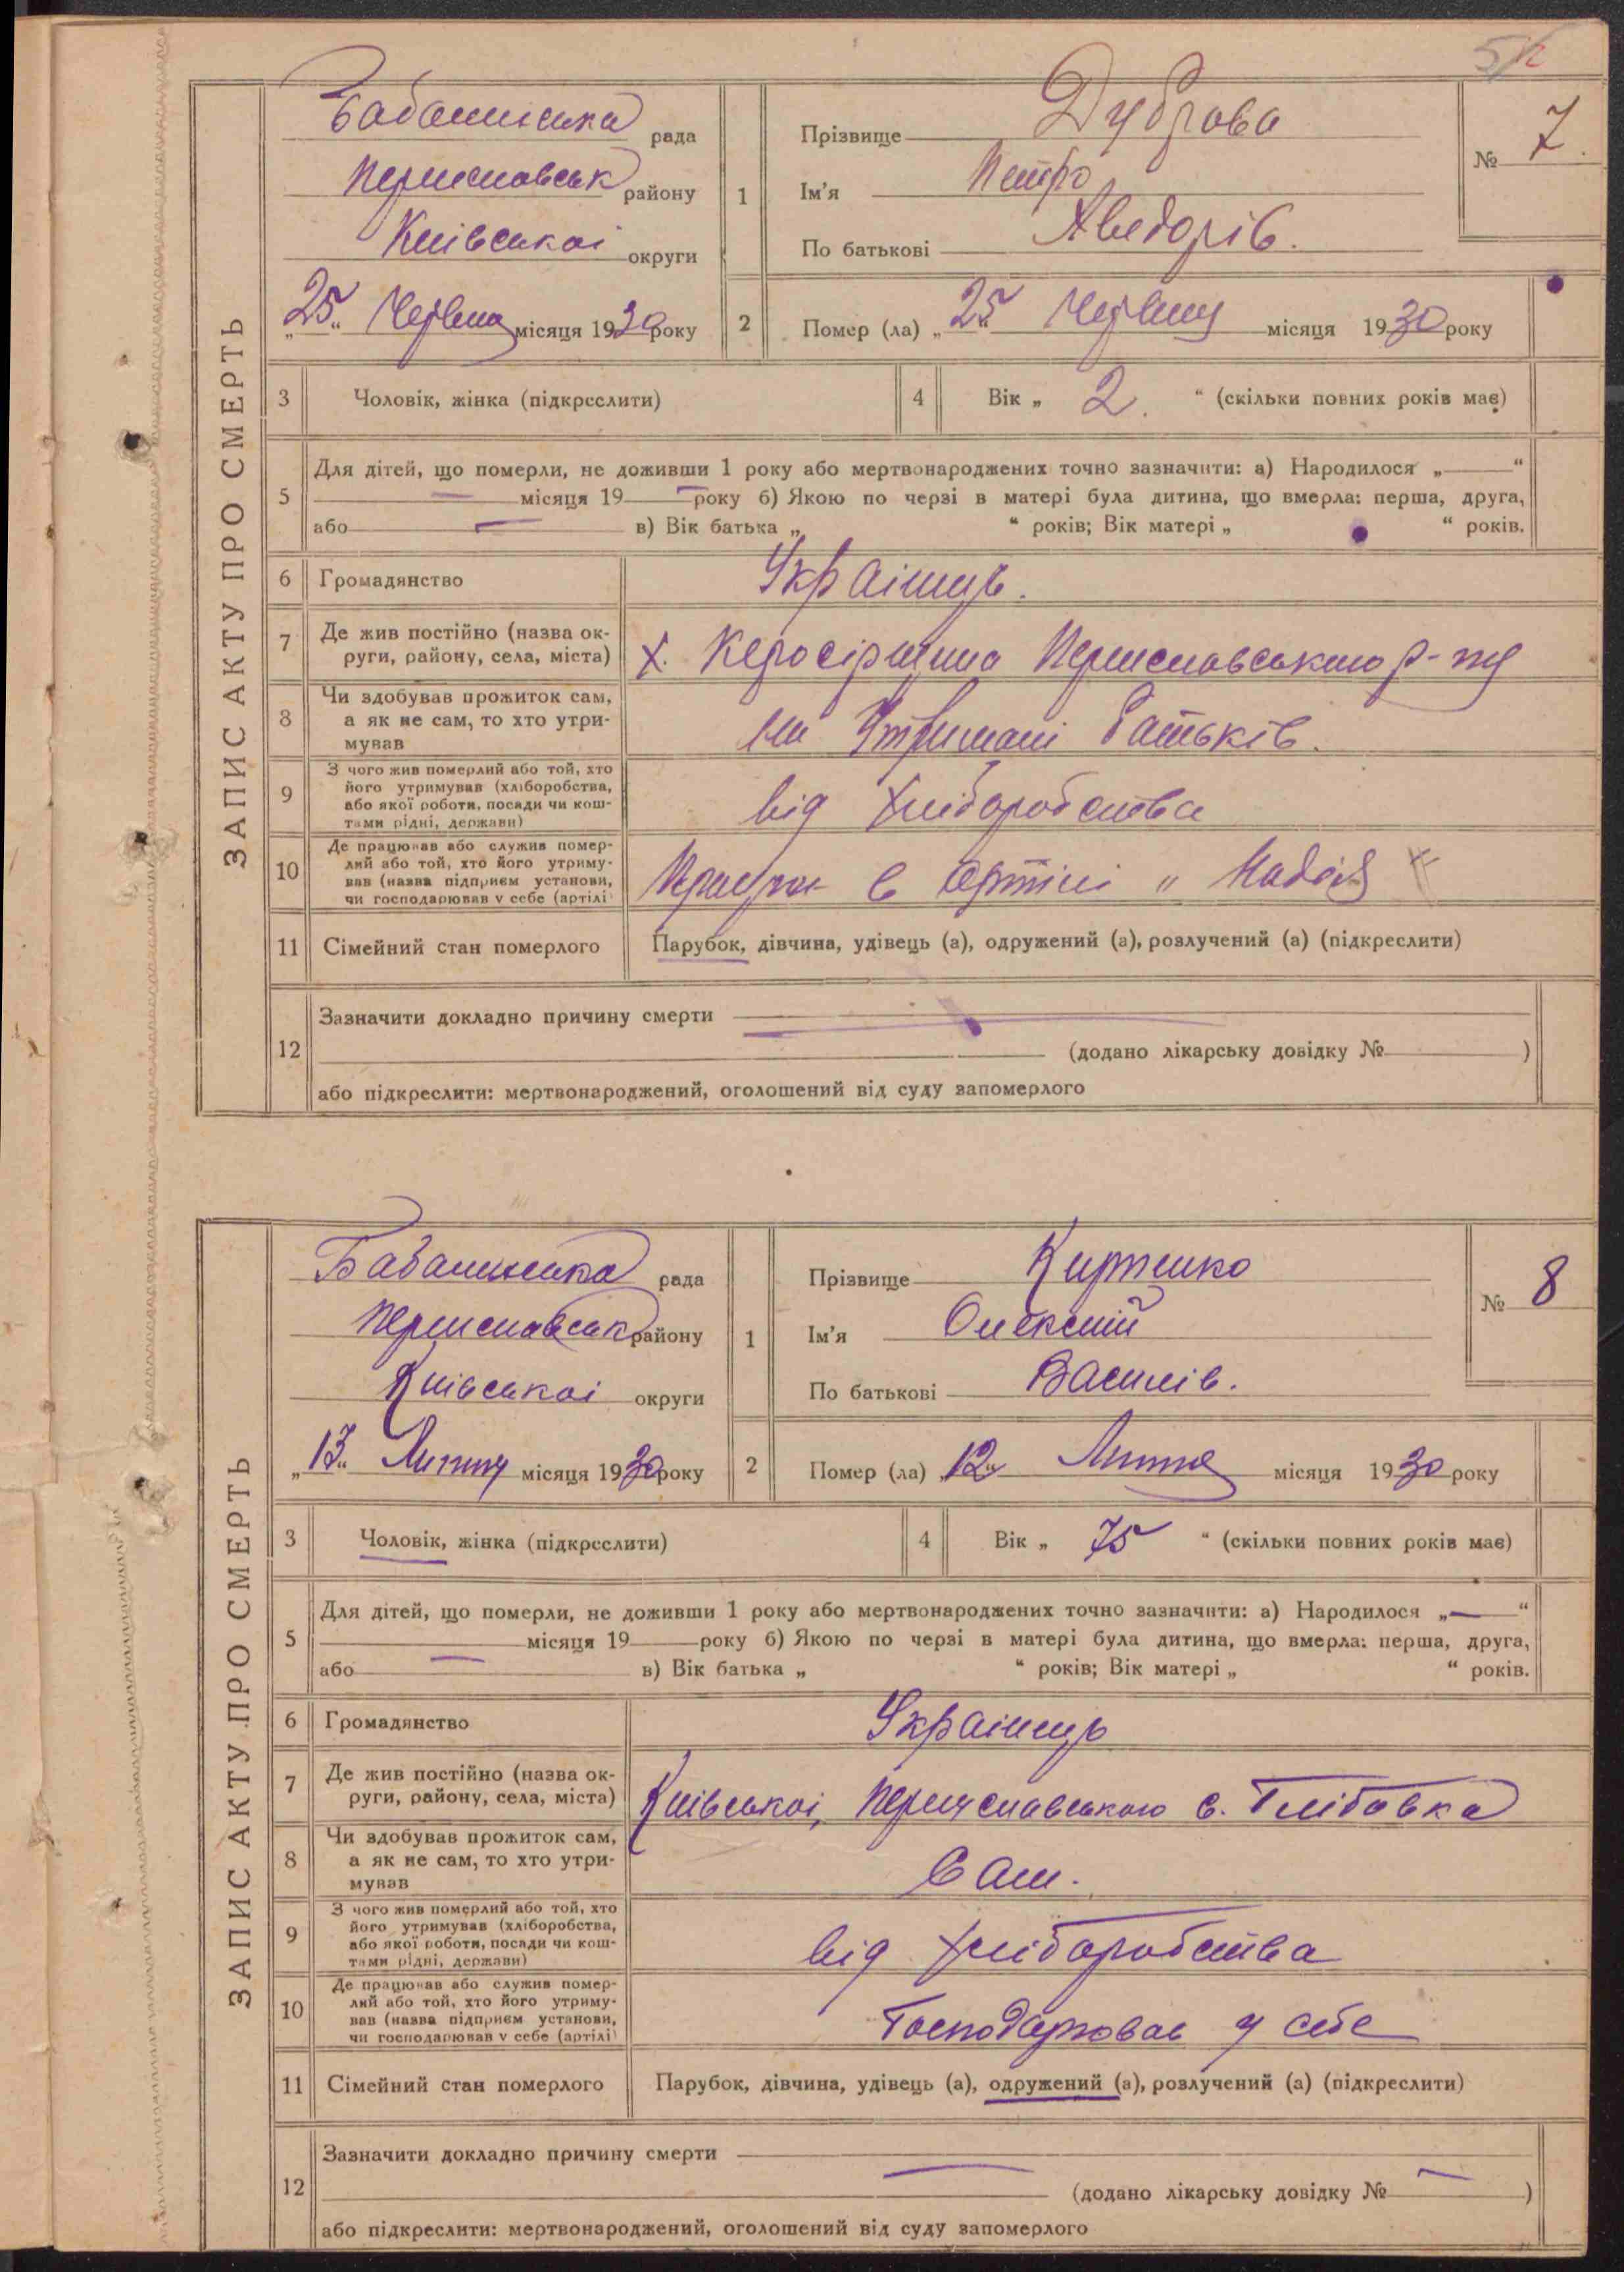 5
ЗАПИС АКТУ ПРО СМЕРТЬ
рада
Переиславськ району
Київськоі округи
„25“ Червня місяця 1930 року
1
Прізвище Дуброва
Ім'я Петро
По батькові Хведорів.
№ 7.
2
Помер (ла) „25“ Червня місяця 1930 року
3 Чоловік, жінка (підкреслити)
4 Вік „ 2. “ (скільки повних років має)
5
Для дітей, що померли, не доживши 1 року або мертвонароджених точно зазначити: а) Народилося „ — “
— місяця 19 — року б) Якою по черзі в матері була дитина, що вмерла: перша, друга,
або — в) Вік батька „ “ років; Вік матері „ “ років.
6 Громадянство Украінець.
7 Де жив постійно (назва ок-
руги, району, села, міста) х. Переиславського р-ну
8 Чи здобував прожиток сам,
а як не сам, то хто утри-
мував на Утримані батьків.
9 З чого жив померлий або той, хто
його утримував (хліборобства,
або якої роботи, посади чи кош-
тами рідні, держави) від хліборобства
10 Де працював або служив помер-
лий або той, хто його утриму-
вав (назва підприєм установи,
чи господарював у себе (артілі) в артілі „ Надія
11 Сімейний стан померлого Парубок, дівчина, удівець (а), одружений (а), розлучений (а) (підкреслити)
12
Зазначити докладно причину смерти —
(додано лікарську довідку № )
або підкреслити: мертвонароджений, оголошений від суду запомерлого
ЗАПИС АКТУ ПРО СМЕРТЬ
рада
Переиславськ району
Київськоі округи
„13“ Липня місяця 1930 року
1
Прізвище
Ім'я Олексій
По батькові Василів.
№ 8
2
Помер (ла) „12“ Липня місяця 1930 року
3 Чоловік, жінка (підкреслити)
4 Вік „ 75 “ (скільки повних років має)
5
Для дітей, що померли, не доживши 1 року або мертвонароджених точно зазначити: а) Народилося „ — “
— місяця 19 року б) Якою по черзі в матері була дитина, що вмерла: перша, друга,
або в) Вік батька „ “ років; Вік матері „ “ років.
6 Громадянство Украінець
7 Де жив постійно (назва ок-
руги, району, села, міста) Київськоі, Переиславського с. Глібовка
8 Чи здобував прожиток сам,
а як не сам, то хто утри-
мував Сам.
9 З чого жив померлий або той, хто
його утримував (хліборобства,
або якої роботи, посади чи кош-
тами рідні, держави) від хліборобства
10 Де працював або служив помер-
лий або той, хто його утриму-
вав (назва підприєм установи,
чи господарював у себе (артілі) Господарював у себе
11 Сімейний стан померлого Парубок, дівчина, удівець (а), одружений (а), розлучений (а) (підкреслити)
12
Зазначити докладно причину смерти —
(додано лікарську довідку № — )
або підкреслити: мертвонароджений, оголошений від суду запомерлого